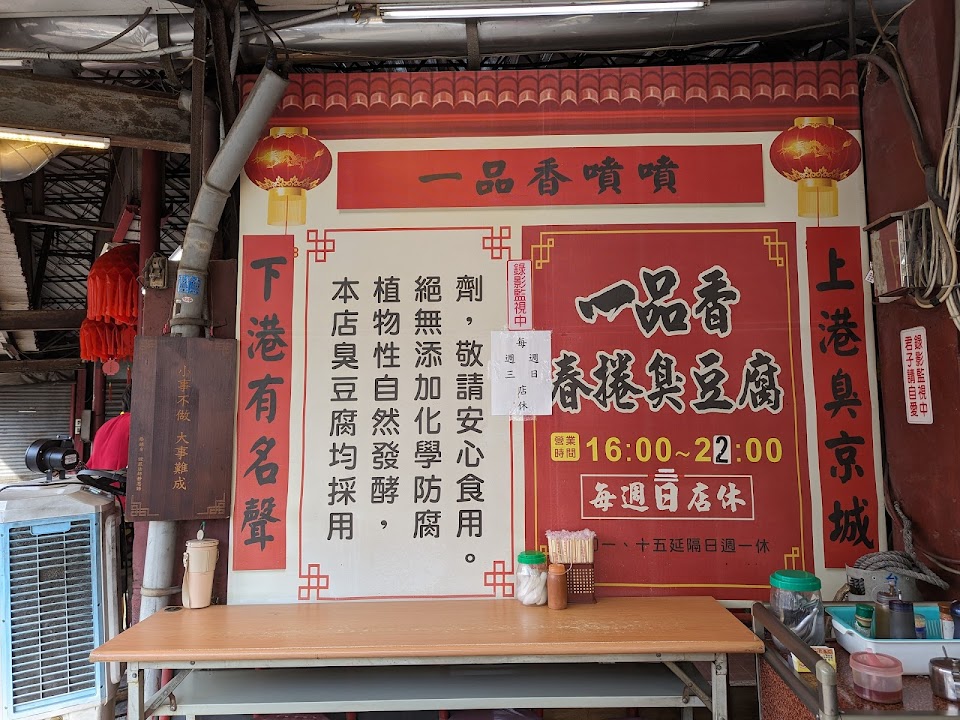 一品香噴噴
上港臭京城
下港有名聲
本店臭豆腐均採用
植物性自然發酵，
絕無添加化學防腐
劑，敬請安心食用。
錄影監視中
每
週日
週三
店休
一品香
春捲臭豆腐
營業時間 16:00~22:00
三
每週日店休
一、十五延隔日週一休
錄影監視中
君子請自愛
小事不做 大事難成